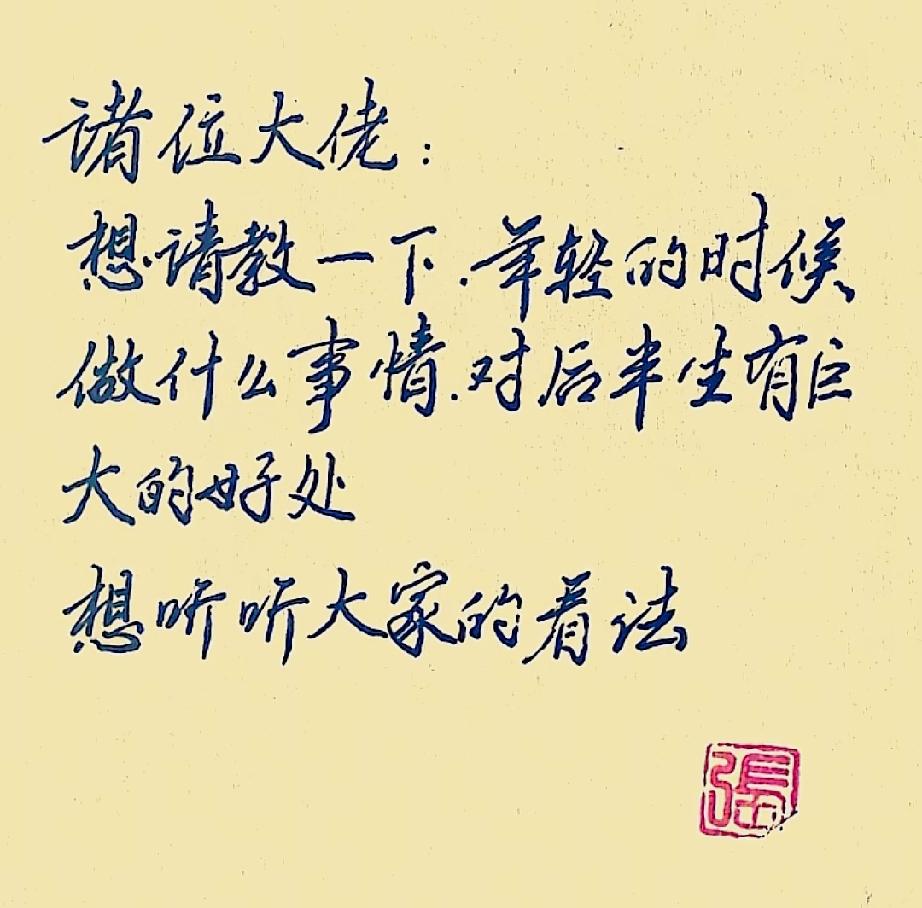 诸位大佬：
想请教一下.年轻的时候
做什么事情.对后半生有巨
大的好处
想听听大家的看法
張